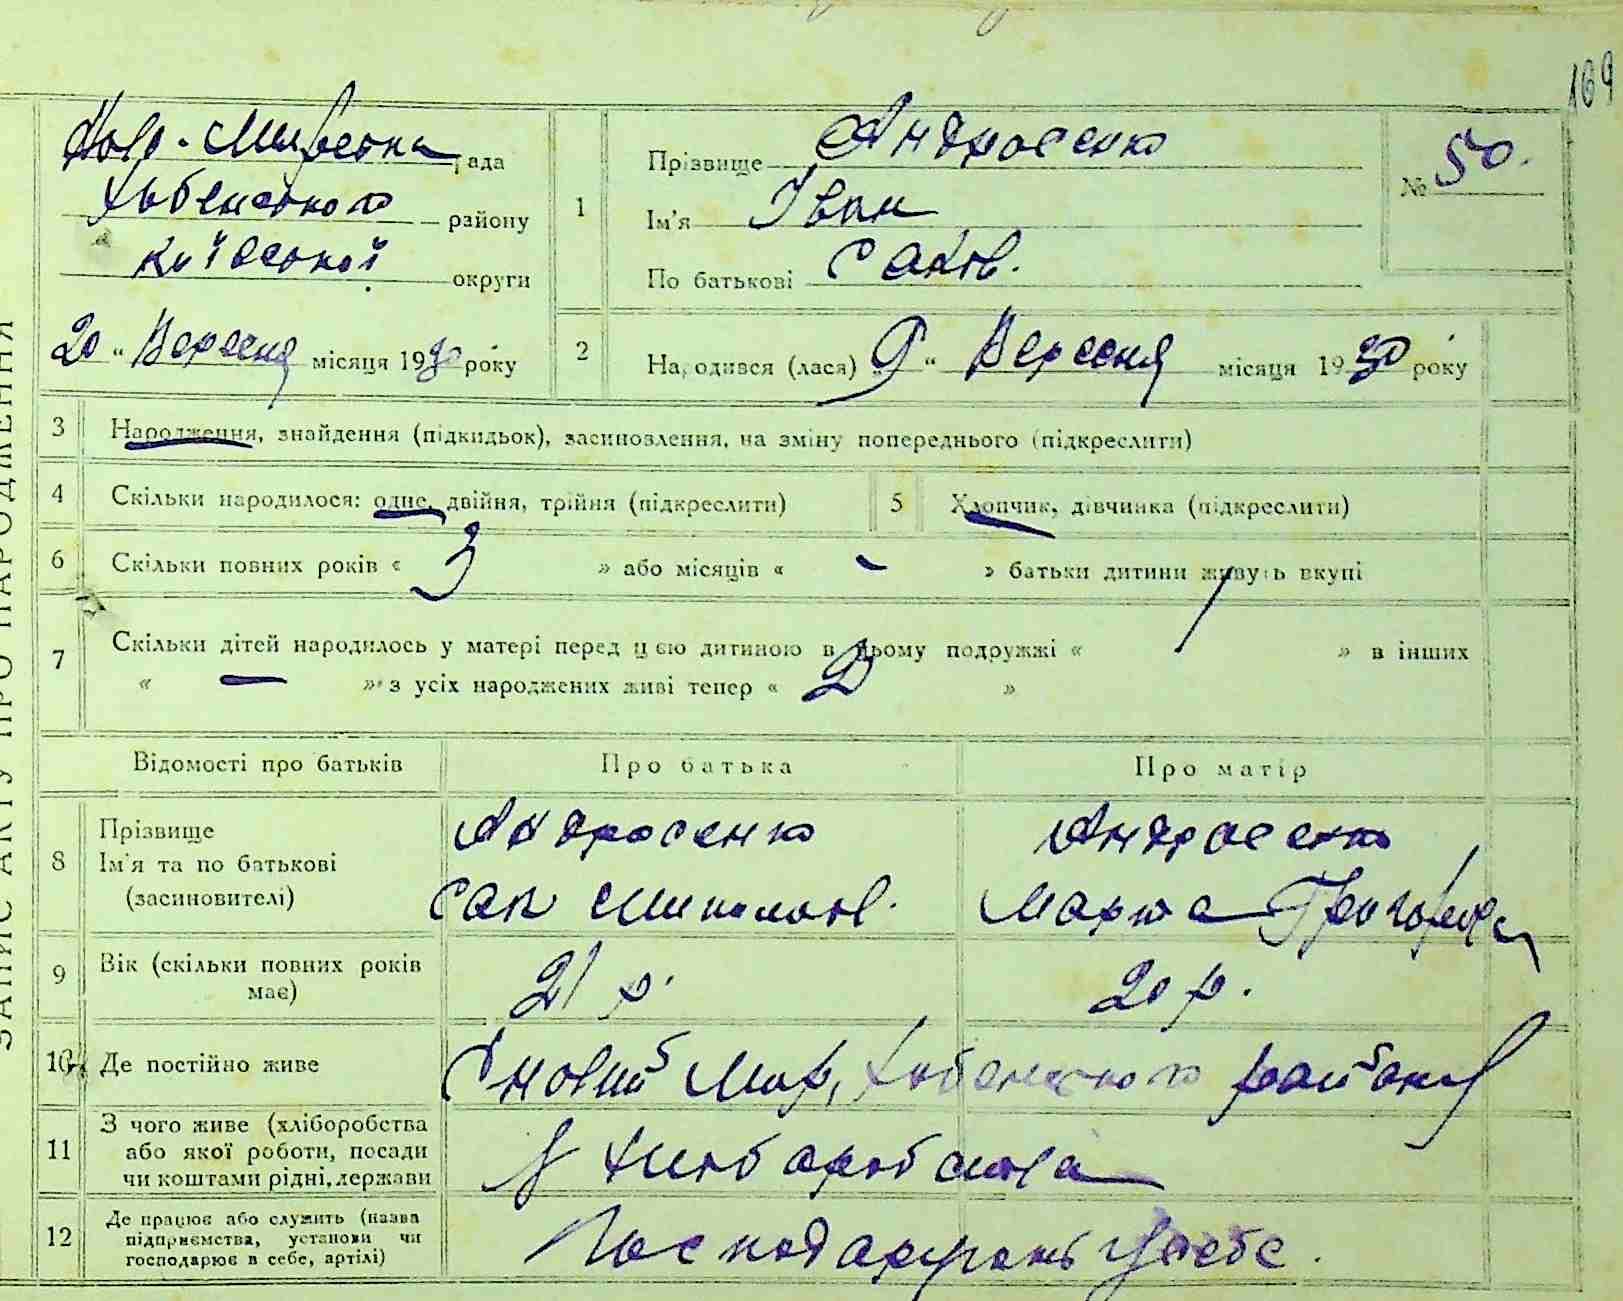 169
Ново-Мирвська рада
Хабенського району
Київської округи
20 " Вересня місяця 1930 року
1 Прізвище Андросенко
Ім'я Іван
По батькові Саков.
№ 50.
2 Народився (лася) „ 9 “ Вересня місяця 1930 року
ЗАПИС АКТУ ПРО НАРОДЖЕННЯ
3 Народження, знайдення (підкидьок), засиновлення, на зміну попереднього (підкреслити)
4 Скільки народилося: одне, двійня, трійня (підкреслити) 5 Хлопчик, дівчинка (підкреслити)
6 Скільки повних років « 3 » або місяців « - » батьки дитини живуть вкупі
7 Скільки дітей народилось у матері перед цією дитиною в цьому подружжі « 1 » в інших
« — » з усіх народжених живі тепер « 2 »
Відомості про батьків Про батька Про матір
8 Прізвище Андросенко Андросенко
Ім'я та по батькові Сак Миколаєв. Марта Григорівна
(засиновителі)
9 Вік (скільки повних років має) 21 р. 20 р.
10 Де постійно живе С Новий Мир, Хабенського району
11 З чого живе (хліборобства З хліборобства
або якої роботи, посади
чи коштами рідні, держави
12 Де працює або служить (назва Господарують у себе.
підприємства, установи чи
господарює в себе, артілі)